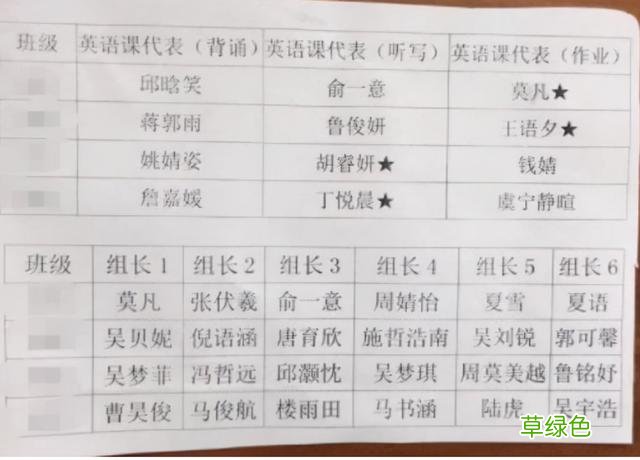 班级 英语课代表（背诵） 英语课代表（听写） 英语课代表（作业）
邱晗笑 俞一意 莫凡★
蒋郭雨 鲁俊妍 王语夕★
姚婧姿 胡睿妍★ 钱婧
詹嘉媛 丁悦晨★ 虞宁静暄
班级 组长1 组长2 组长3 组长4 组长5 组长6
莫凡 张伏羲 俞一意 周婧怡 夏雪 夏语
吴贝妮 倪语涵 唐育欣 施哲浩南 吴刘锐 郭可馨
吴梦菲 冯哲远 邱灏忱 吴梦琪 周莫美越 鲁铭妤
曹昊俊 马俊航 楼雨田 马书涵 陆虎 吴宇浩
草绿色